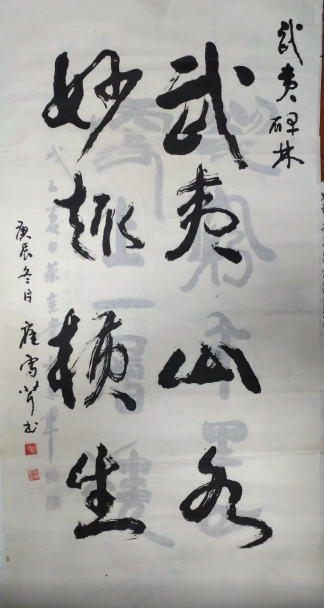 武夷碑林
武夷山水
妙趣横生
庚辰冬日崔雪书